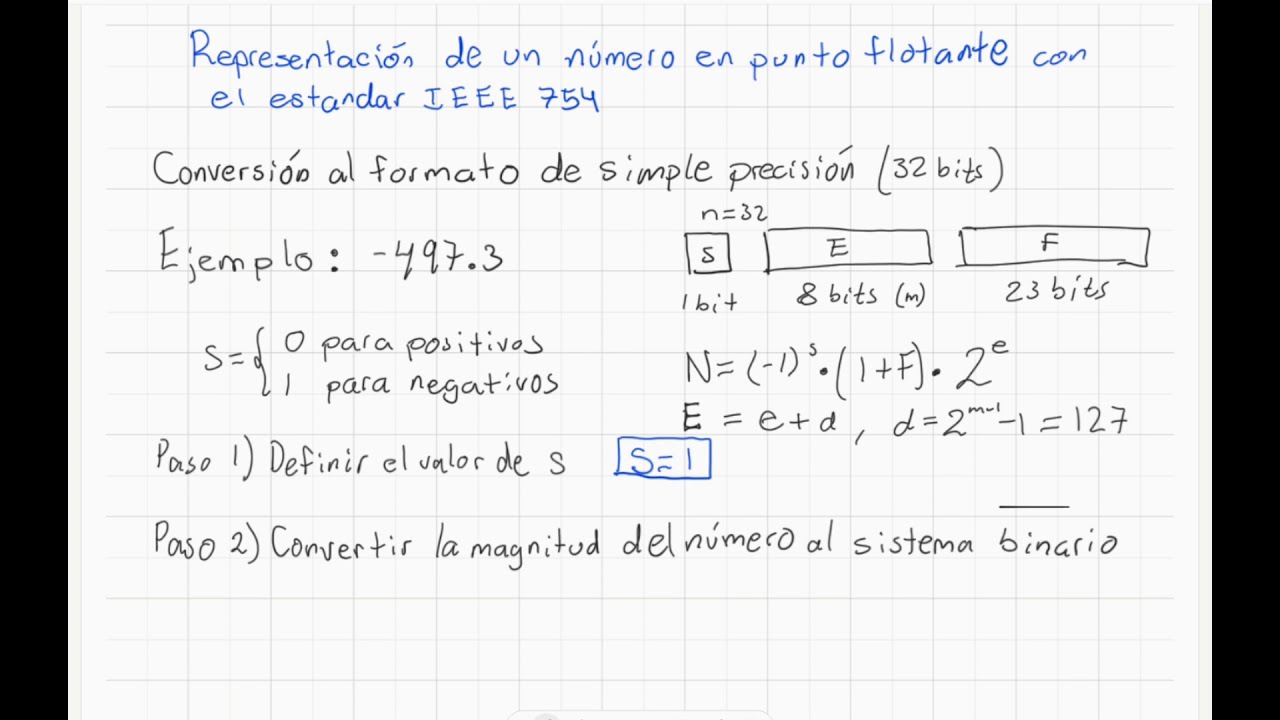 Representación de un número en punto flotante con
el estandar IEEE 754
Conversión al formato de simple precisión (32 bits)
n=32
Ejemplo: -497.3
S E F
1 bit 8 bits (m) 23 bits
S={ 0 para positivos
1 para negativos
N=(-1)^s·(1+F)·2^e
E = e+d, d=2^{m-1}-1=127
Paso 1) Definir el valor de s S=1
Paso 2) Convertir la magnitud del número al sistema binario